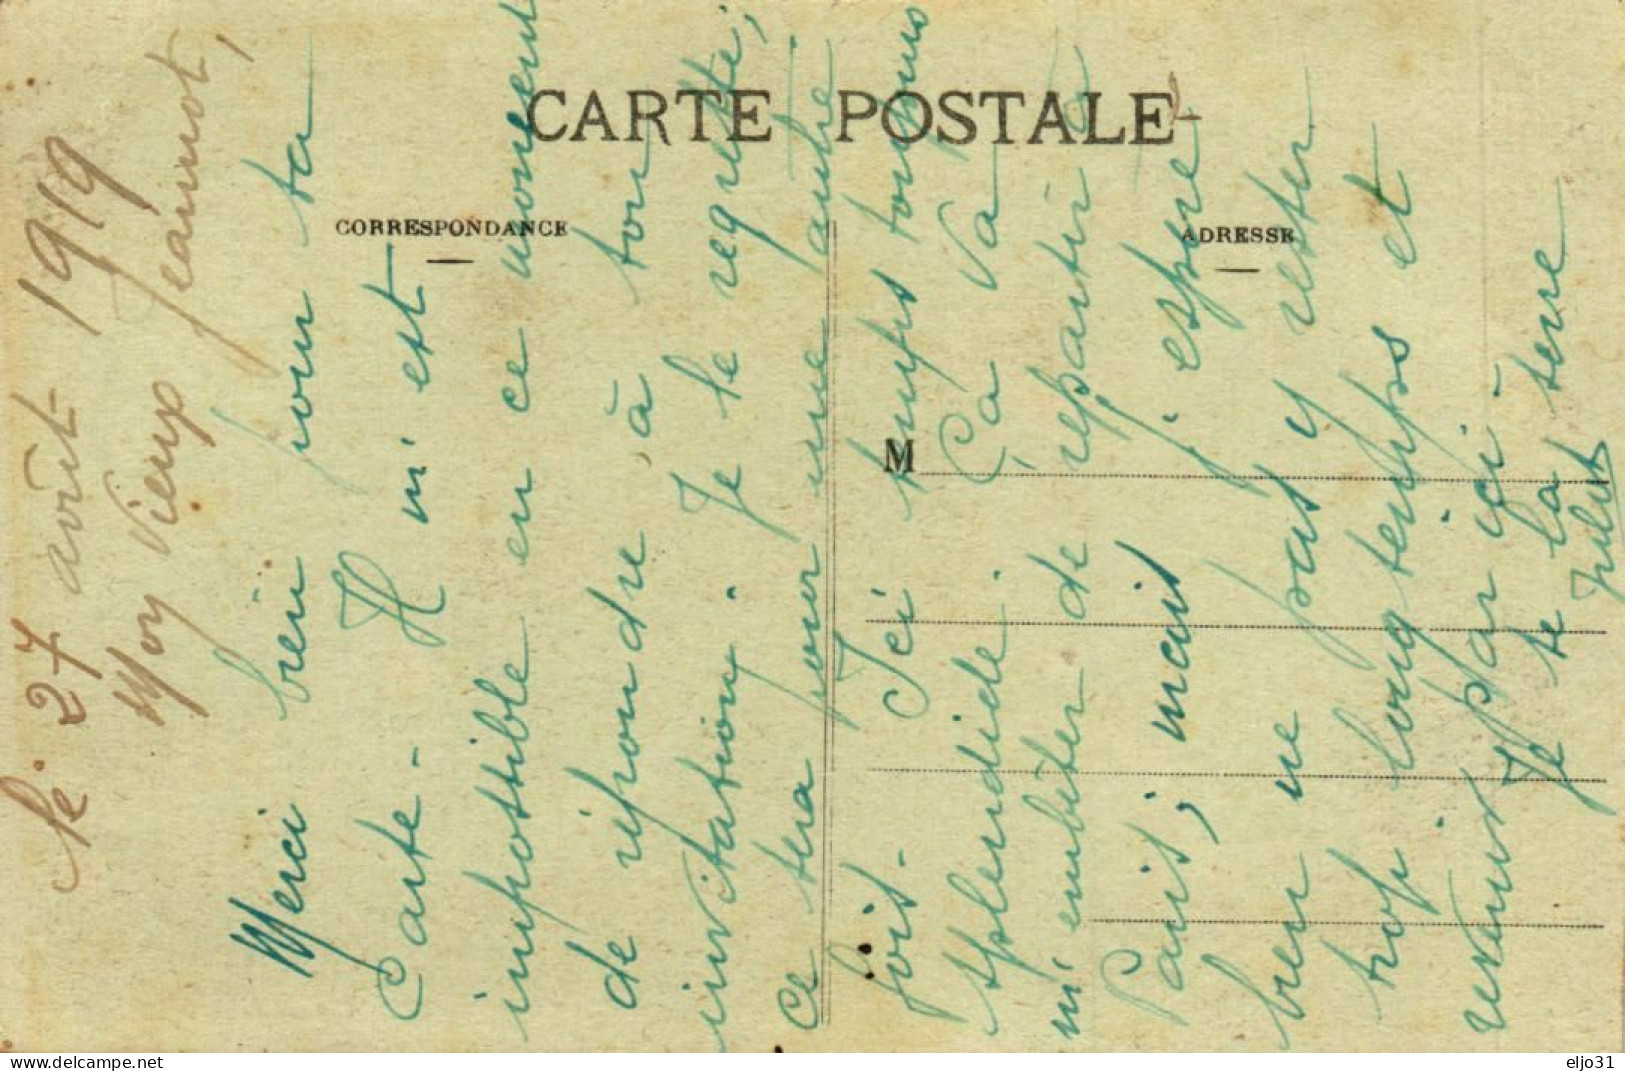 CARTE POSTALE
CORRESPONDANCE
ADRESSE
M
le 27 août 1919
Mon Vieux Jeannot,
Merci bien pour ta
Carte - Il m'est
impossible en ce moment
de répondre à ton
invitation. Je le regrette;
ce sera pour une autre
fois - Ici temps toujours
splendide. Ça va
m'embêter de repartir à
Paris; mais j'espère
bien ne pas y rester
trop longtemps et
revenir par ici -
Je te la serre
eljo31